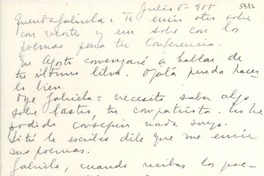 Julio 5- 955
Querida Gabriela: Te envío otro sobre
con recorte y un sobre con los
poemas para tu Conferencia.
En Agosto comenzaré a hablar de
tu último libro. Ojalá pueda hacer-
lo bien.
Oye Gabriela: necesito saber algo
sobre tu compatriota. No he
podido conseguir nada suyo.
Si tú le escribes dile que me envíe
sus poemas.
Gabriela, cuando recibas los poe-